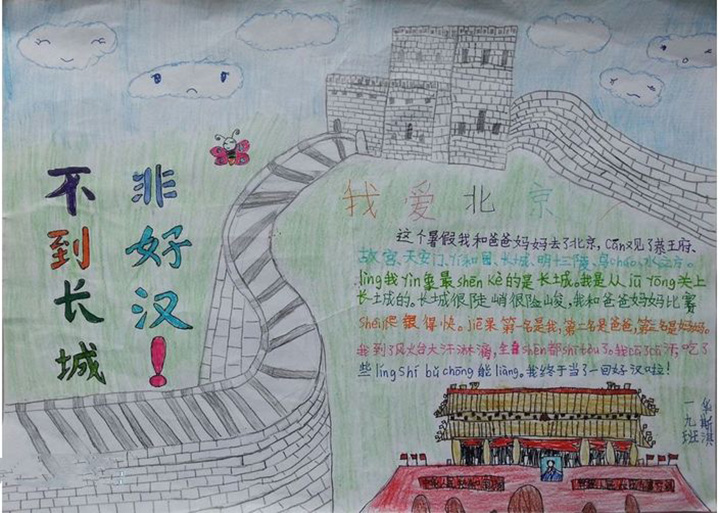 不到长城
非好汉！
我爱北京
这个暑假我和爸爸妈妈去了北京，cān观了恭王府、
故宫、天安门、yí和园、长城、明十三陵、鸟cháo、水立方。
lìng我yìn象最shēn kè的是长城。我是从jū yōng关上
长城的。长城很陡峭很险峻，我和爸爸妈妈比赛
shéi爬得快。jié果第一名是我，第二名是爸爸，第三名是妈妈。
我到了风火台大汗淋漓，全shēn都shī tòu了。我cā cā汗，吃了
些líng shí bǔ chōng能liàng。我终于当了一回好汉啦！
一九班
华斯淇